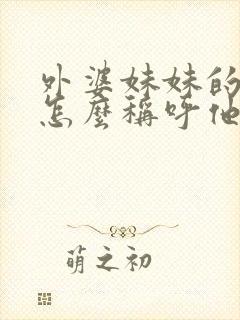 外婆妹妹的
怎麼稱呼他
萌之初